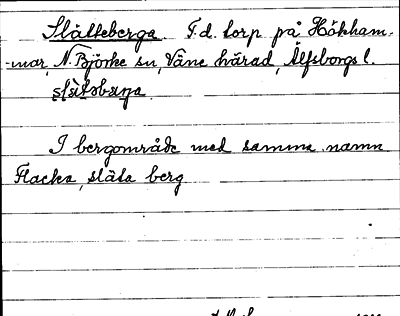 Slätteberga. F.d. torp på Hökham-
mar, N. Björke sn, Väne härad, Älfsborgs l.
slätabærja
I bergområde med samma namn
Flacka, släta berg